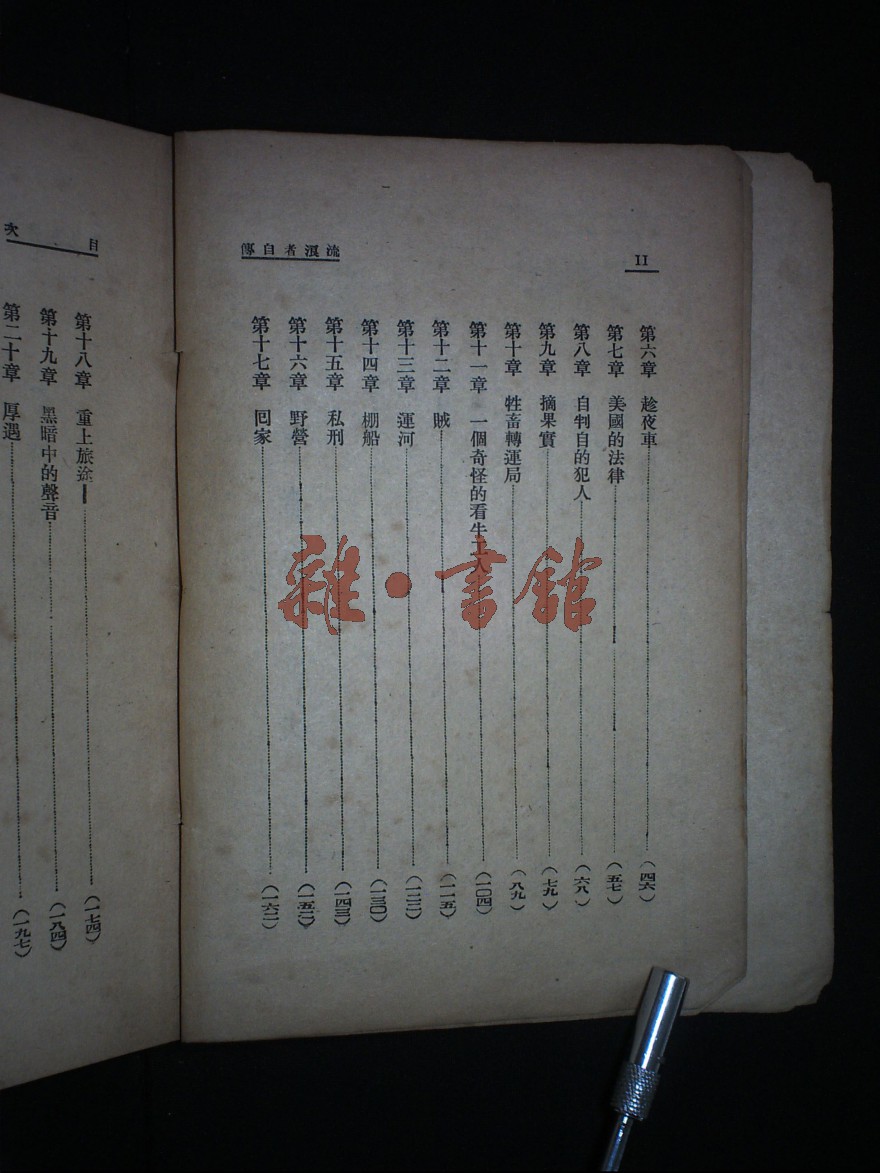 II
流浪者自傳
第六章 趁夜車……(四六)
第七章 美國的法律……(五七)
第八章 自判自的犯人……(六八)
第九章 摘果實……(七九)
第十章 牲畜轉運局……(八九)
第十一章 一個奇怪的看牛工人……(一〇四)
第十二章 賊……(一一五)
第十三章 運河……(一二二)
第十四章 棚船……(一三〇)
第十五章 私刑……(一四三)
第十六章 野營……(一五二)
第十七章 回家……(一六二)
目次
第十八章 重上旅途……(一七四)
第十九章 黑暗中的聲音……(一八四)
第二十章 厚遇……(一九七)
雜·書館